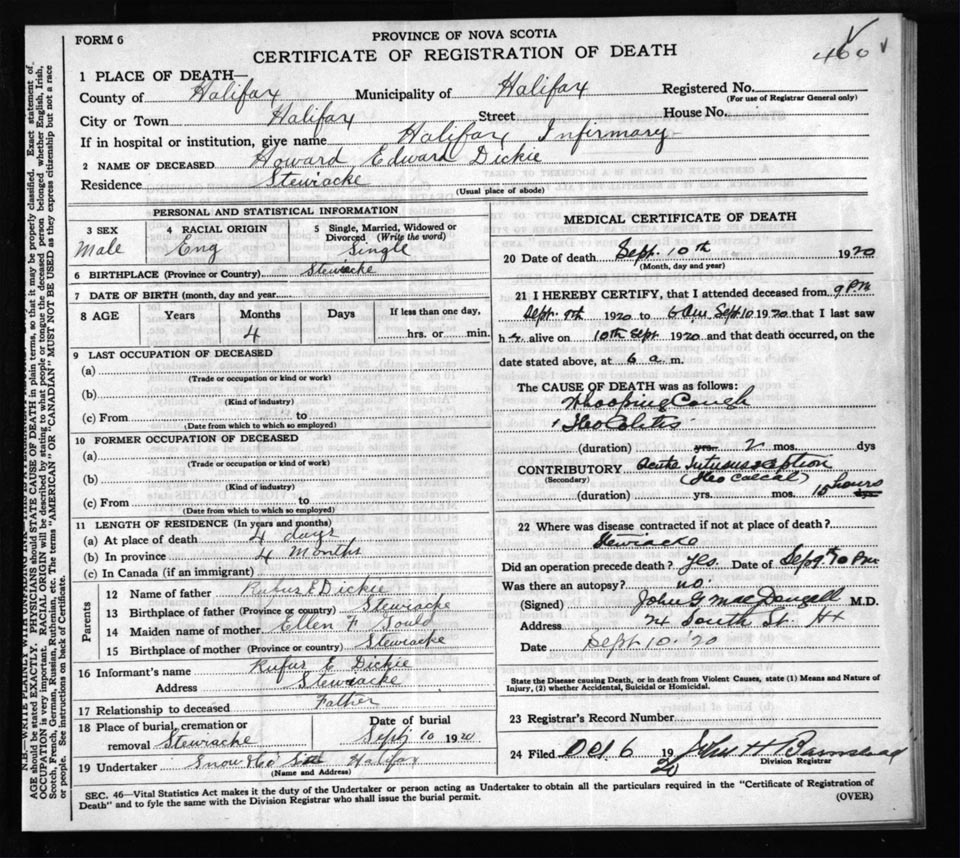 FORM 6
PROVINCE OF NOVA SCOTIA
CERTIFICATE OF REGISTRATION OF DEATH
460
1 PLACE OF DEATH—
County of Halifax Municipality of Halifax Registered No.
(For use of Registrar General only)
City or Town Halifax Street House No.
If in hospital or institution, give name Halifax Infirmary
2 NAME OF DECEASED Howard Edward Dickie
Residence Stewiacke
(Usual place of abode)
PERSONAL AND STATISTICAL INFORMATION
3 SEX Male
4 RACIAL ORIGIN Eng
5 Single, Married, Widowed or Divorced (Write the word) Single
6 BIRTHPLACE (Province or Country) Stewiacke
7 DATE OF BIRTH (month, day and year)
8 AGE Years Months 4 Days If less than one day, hrs. or min.
9 LAST OCCUPATION OF DECEASED
(a)
(Trade or occupation or kind or work)
(b)
(Kind of industry)
(c) From to
(Date from which to which so employed)
10 FORMER OCCUPATION OF DECEASED
(a)
(Trade or occupation or kind of work)
(b)
(Kind of industry)
(c) From to
(Date from which to which so employed)
11 LENGTH OF RESIDENCE (In years and months)
(a) At place of death 4 days
(b) In province 4 months
(c) In Canada (if an immigrant)
Parents
12 Name of father Rufus E Dickie
13 Birthplace of father (Province or country) Stewiacke
14 Maiden name of mother Ellen F Gould
15 Birthplace of mother (Province or country) Stewiacke
16 Informant's name Rufus E Dickie
Address Stewiacke
17 Relationship to deceased Father
18 Place of burial, cremation or removal Stewiacke Date of burial Sept 10 1920
19 Undertaker Snow & Co Halifax
(Name and Address)
MEDICAL CERTIFICATE OF DEATH
20 Date of death Sept. 10th 1920
(Month, day and year)
21 I HEREBY CERTIFY, that I attended deceased from 9 Pm
Sept. 1920 to 6 am Sept 10 1920 that I last saw
h alive on 10th Sept 1920 and that death occurred, on
date stated above, at 6 a. m.
The CAUSE OF DEATH was as follows:
Whooping Cough
Ileo Colitis
(duration) yrs. 2 mos. dys
CONTRIBUTORY Acute Intussusception
(Secondary) (Ileo caecal)
(duration) yrs. mos. 10 hours dys.
22 Where was disease contracted if not at place of death?
Stewiacke
Did an operation precede death? yes. Date of Sept 9th 10 Pm
Was there an autopsy? no.
(Signed) John G MacDougall M.D.
Address 74 South St. Hx
Date Sept 10 '20
State the Disease causing Death, or in death from Violent Causes, state (1) Means and Nature of
Injury, (2) whether Accidental, Suicidal or Homicidal.
23 Registrar's Record Number
24 Filed Oct 6 1920 John H Barnstead
Division Registrar
SEC. 46—Vital Statistics Act makes it the duty of the Undertaker or person acting as Undertaker to obtain all the particulars required in the "Certificate of Registration of
Death" and to fyle the same with the Division Registrar who shall issue the burial permit. (OVER)
N.B.—WRITE PLAINLY WITH UNFADING INK
AGE should be stated EXACTLY. PHYSICIANS should STATE CAUSE OF DEATH in plain terms, so that it may be properly classified. Exact statement of
OCCUPATION is very important. RACIAL ORIGIN will be described by stating to what people or tongue the deceased person belonged, whether English, Irish,
Scotch, French, German, Russian, Ruthenian, etc. The terms "AMERICAN" OR "CANADIAN" MUST NOT BE USED as they express citizenship but not a race
or people. See instructions on back of Certificate.